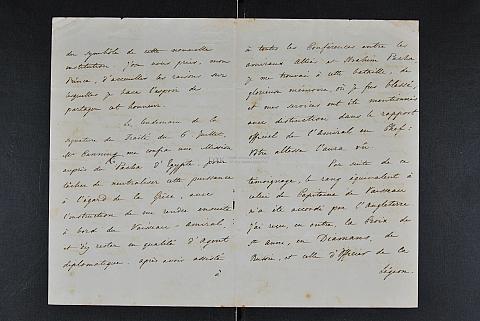 du symbole de cette nouvelle
institution, j'ose vous prier, mon
Prince, d'accueillir les raisons sur
lesquelles je base l'espoir de
partager cet honneur.
Le lendemain de la
signature du Traité du 6 Juillet,
Mr Canning me confia une Mission
auprès du Pacha d'Egypte, pour
tâcher de neutraliser cette puissance
à l'égard de la Grèce, avec
l'instruction de me rendre ensuite
à bord du Vaisseau-amiral,
et d'y rester en qualité d'Agent
diplomatique. après avoir assisté
à
à toutes les Conférences entre les
amiraux Alliés et Ibrahim Pacha
je me trouvai à cette bataille, de
glorieuse mémoire, où je fus blessé,
et mes services ont été mentionnés
avec distinction dans le rapport
officiel de l'amiral en Chef:
Votre altesse l'aura vu
Par suite de ce
témoignage, le rang équivalent à
celui de Capitaine de Vaisseau
m'a été accordé par l'Angleterre
j'ai reçu, en outre, la Croix de
Ste anne, en Diamans, de
Russie, et celle d'Officier de la
Légion